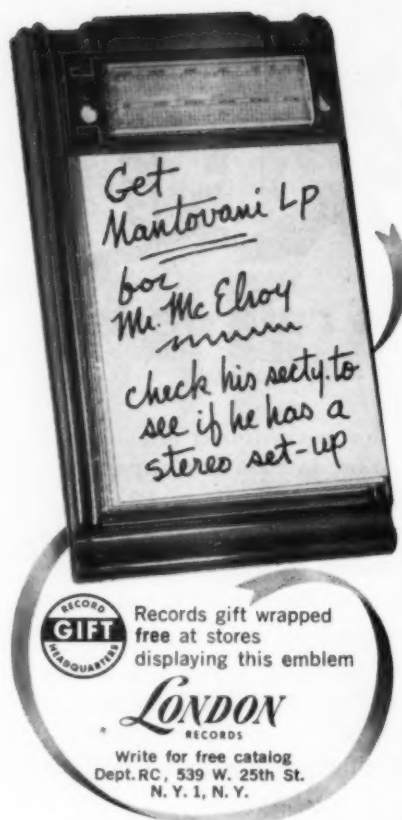 Get
Mantovani LP
for
Mr. McElroy
check his secty. to
see if he has a
stereo set-up
RECORD
GIFT
HEADQUARTERS
Records gift wrapped
free at stores
displaying this emblem
LONDON
RECORDS
Write for free catalog
Dept. RC, 539 W. 25th St.
N. Y. 1, N. Y.